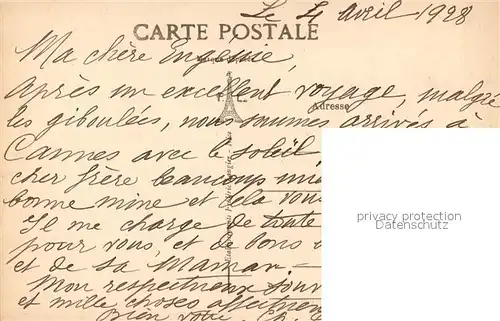 Le 4 Avril 1928
CARTE POSTALE
Ma chère Eugénie,
Adresse
Après un excellent voyage, malgré
les giboulées, nous sommes arrivés à
Cannes avec le soleil
cher frère beaucoup
bonne mine et cela vous
Il me charge de toute
pour vous, et de bons
et de sa Maman. —
privacy protection
Datenschutz
Mon respectueux souv
et mille choses affectueu
Bien votre